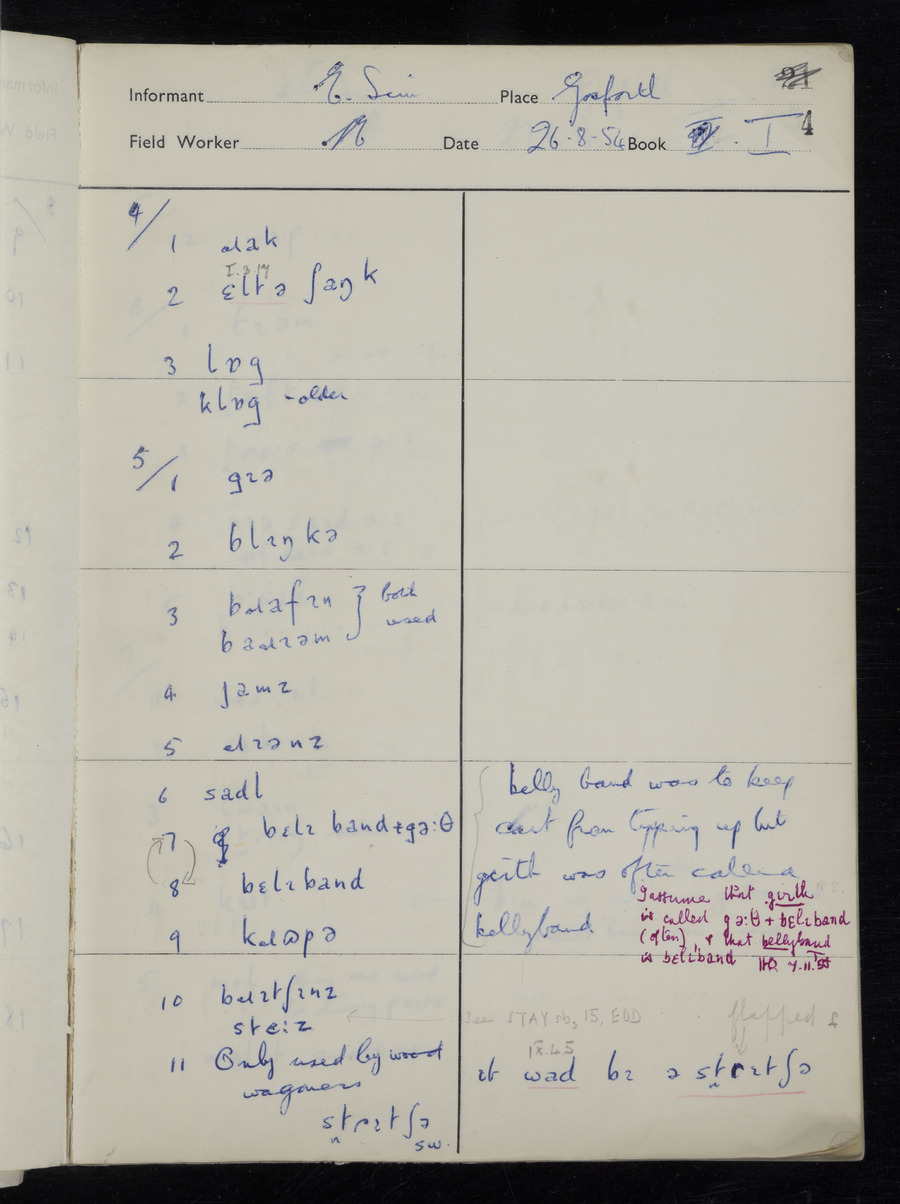 Informant E. Sim Place Gosforth
4
Field Worker Date 26-8-54 Book I
4/
1 ɹak
I.3.17
2 ɛltə ʃaŋk
3 lɒg
klɒg - older
5/
1 gɪə
2 blɪŋkə
3 bɹafɪn } both
baɹɪəm used
4 jamz
5 ɹɪənz
6 sadl
7 bɛlɪ band + gə:θ
8 bɛlɪband
9 kɹɒpə
10 bɹɪtʃɪnz
ste:z
11 Only used by
wagoners
stɾɪtʃə
sw.
belly band was to keep
cart from typping up but
girth was often called
bellyband
I assume that girth
is called gə:θ + bɛlɪband
(often), & that bellyband
is bɛlɪband
See STAY sb, 15, EDD
flapped ɾ
IX.4.5
ɪt wad bɪ ə stɾɪtʃə